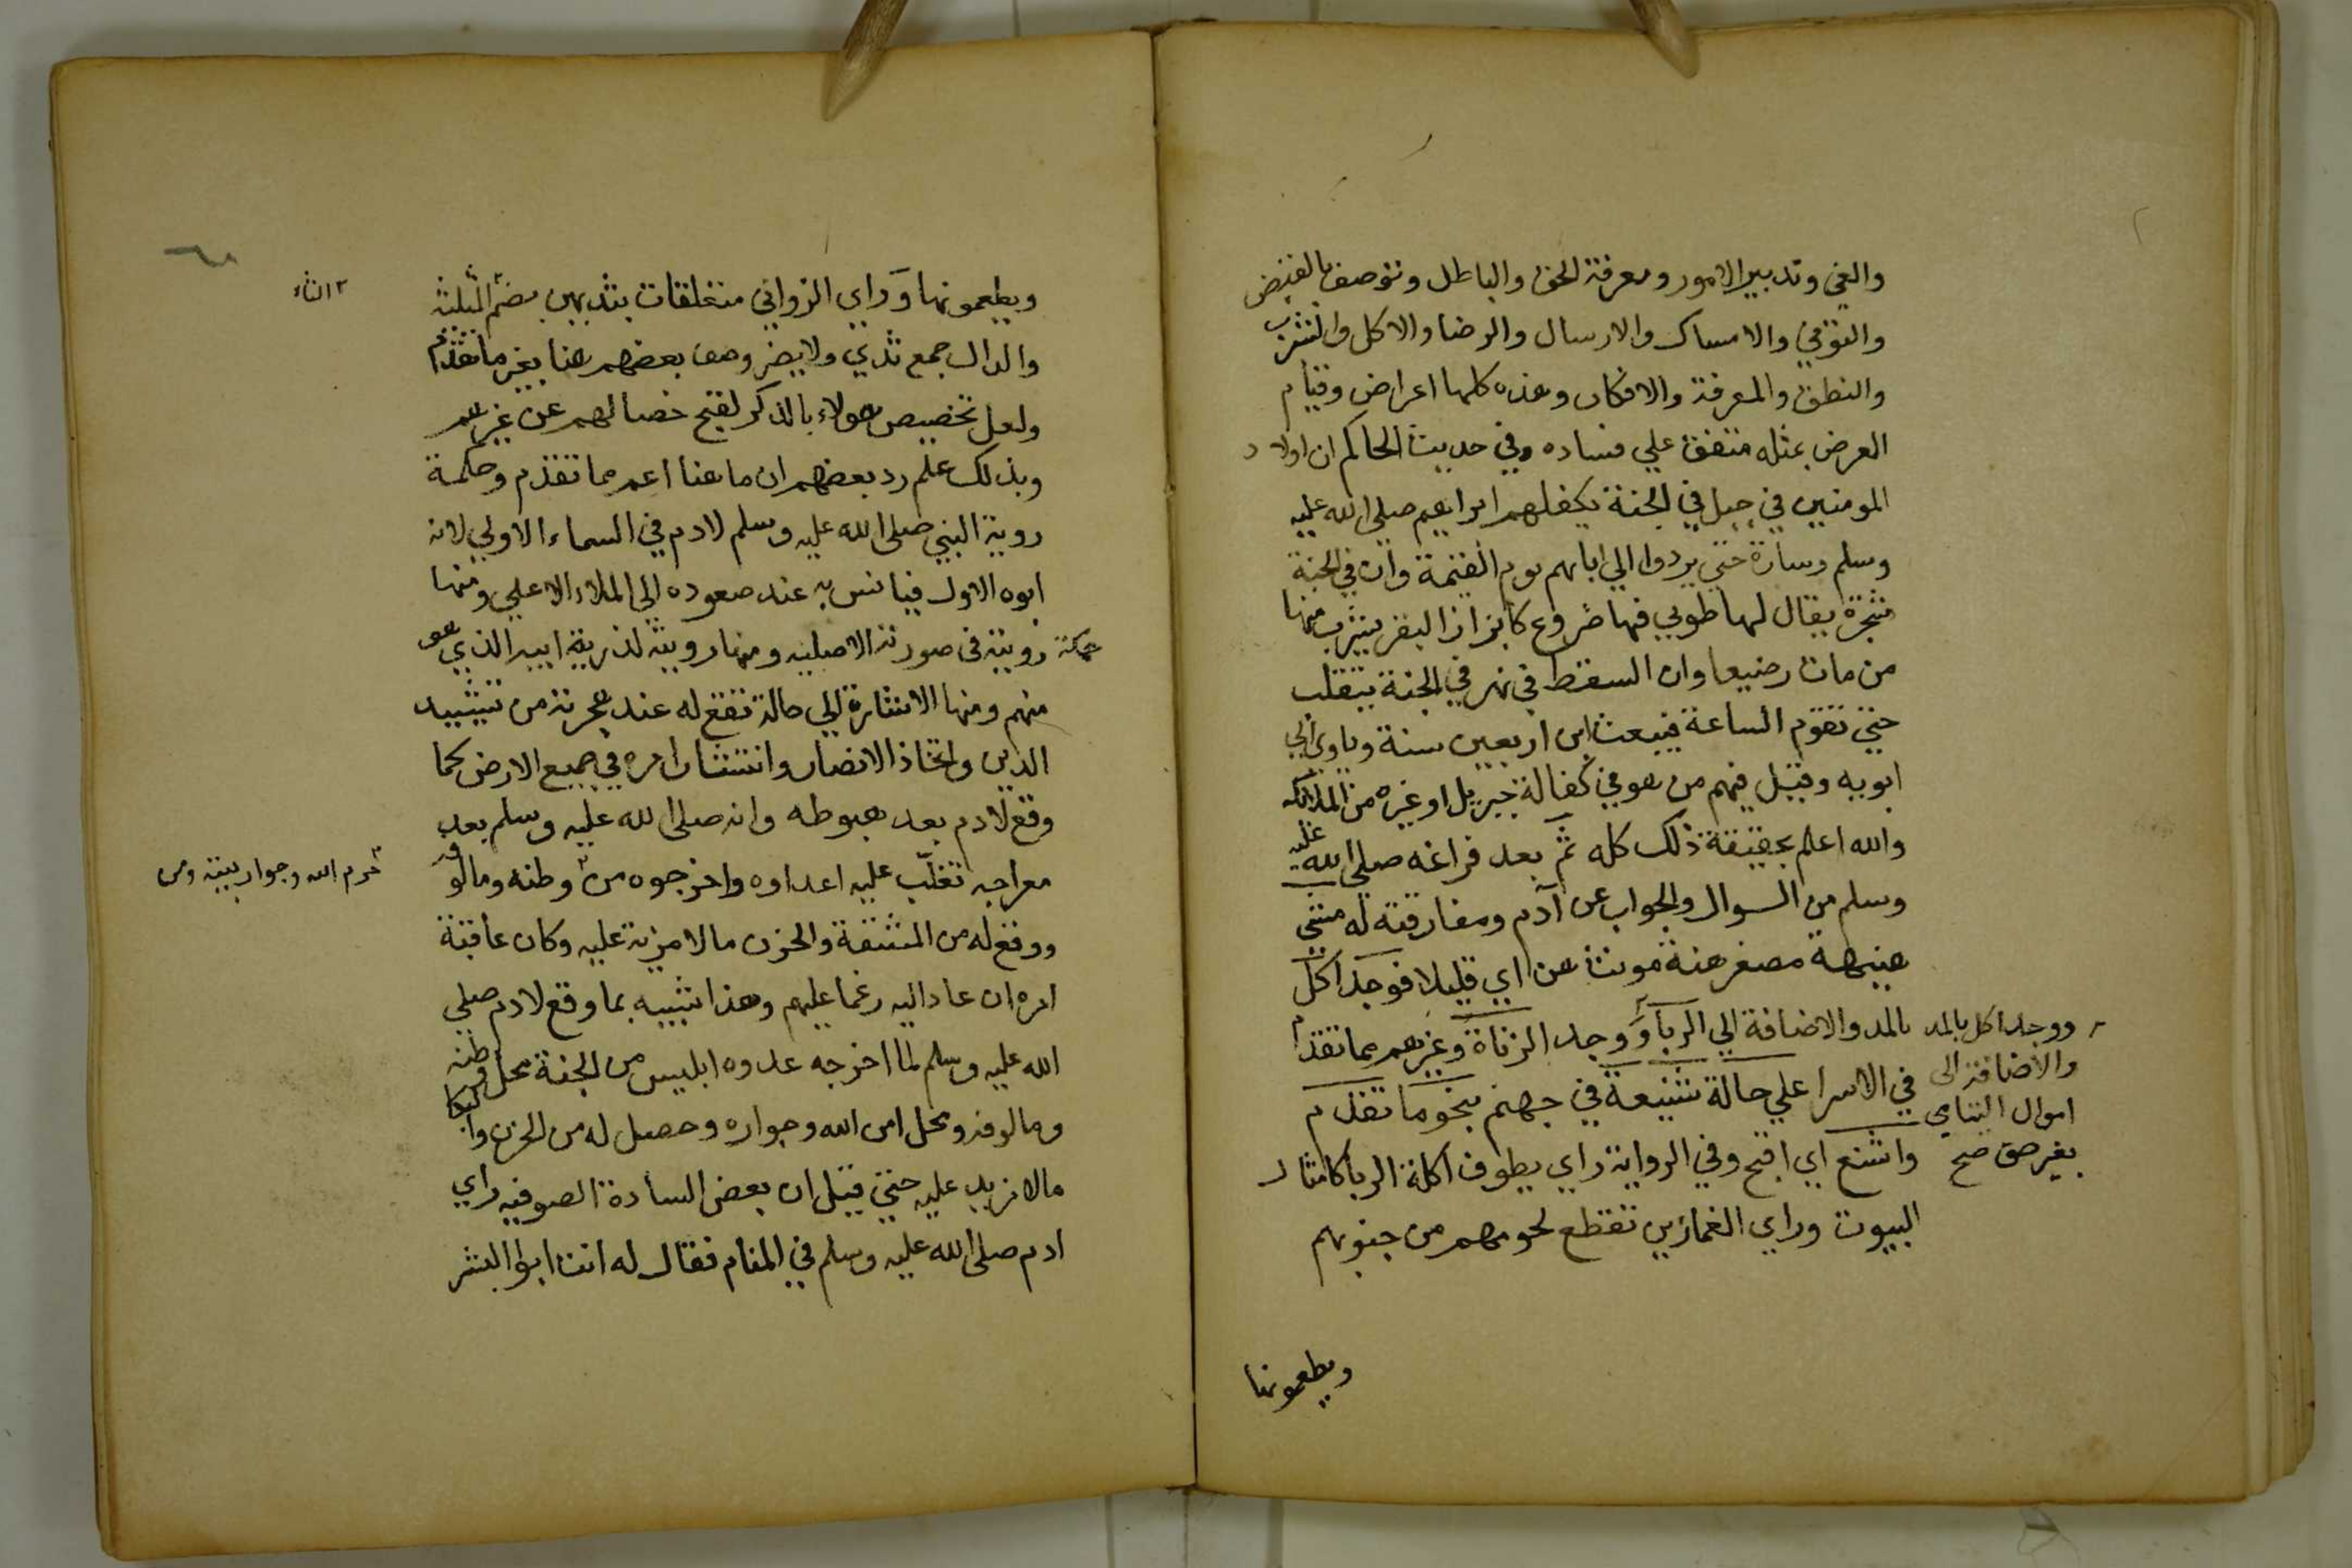 والغي وتدبير الامور ومعرفة الحق والباطل وتوصف بالقبض
والتوفي والامساك والارسال والرضا والاكل والشرب
والنطق والمعرفة والافكار وهذه كلها اعراض وقيام
العرض بمثله متفق علي فساده وفي حديث الحاكم ان اولاد
المومنين في جبل في الجنة يكفلهم ابراهيم صلى الله عليه
وسلم وسارة حتي يردوا الي ابايهم يوم القيمة وان في الجنة
شجرة يقال لها طوبي فيها ضروع كابزاز البقر يشرب منها
من مات رضيعا وان السقط في نهر في الجنة يتقلب
حتي تقوم الساعة فيبعث ابن اربعين سنة وياوي الي
ابويه وقيل فيهم من هو في كفالة جبريل او غيره من الملائكه
والله اعلم بحقيقة ذلك كله ثم بعد فراغه صلى الله عليه
وسلم من السوال والجواب عن آدم ومفارقته له مشي
هنيهة مصغر هنة مونث هن اي قليلا فوجد آكل
بالمد والاضافة الي الربا و ووجد الزناة وغيرهم مما تقدم
ووجد آكل بالمد
والاضافة الى
اموال اليتامي
بغير حق صح
في الاسرا علي حالة شنيعة في جهنم بنحو ما تقدم
واشنع اي اقبح وفي الرواية راي بطون اكلة الربا كامثال
البيوت وراي الغمازين تقطع لحومهم من جنوبهم
ويطعمونها
ويطعمونها وراي الزواني متعلقات بثديهن بضم المثلثة
الثاء
والدال جمع ثدي ولا يضر وصف بعضهم هنا بغير ما تقدم
ولعل تخصيص هولاء بالذكر لقبح خصالهم عن غيرهم
وبذلك علم رد بعضهم ان ما هنا اعم مما تقدم وحكمة
روية النبي صلى الله عليه وسلم لادم في السماء الاولي لانه
ابوه الاول فيانس به عند صعوده الى الملاء الاعلي ومنها
حكمة رويته في صورته الاصليه ومنها رويته لذرية ابيه الذي هو
منهم ومنها الاشارة الي حالة تقع له عند هجرته من تشييد
الدين واتخاذ الانصار وانتشار امره في جميع الارض كما
وقع لادم بعد هبوطه وانه صلى الله عليه وسلم بعد
معراجه تغلب عليه اعداوه واخرجوه من وطنه ومالوفه
حرم الله وجوار بيته ومن
ووقع له من المشقة والحزن ما لا مزية عليه وكان عاقبة
امره ان عاد اليه رغما عليهم وهذا شبيه بما وقع لادم صلى
الله عليه وسلم لما اخرجه عدوه ابليس من الجنة محل وطنه
ومالوفه ومحل امن الله وجواره وحصل له من الحزن والبكا
ما لا مزيد عليه حتي قيل ان بعض السادة الصوفيه راي
ادم صلى الله عليه وسلم في المنام فقال له انت ابو البشر